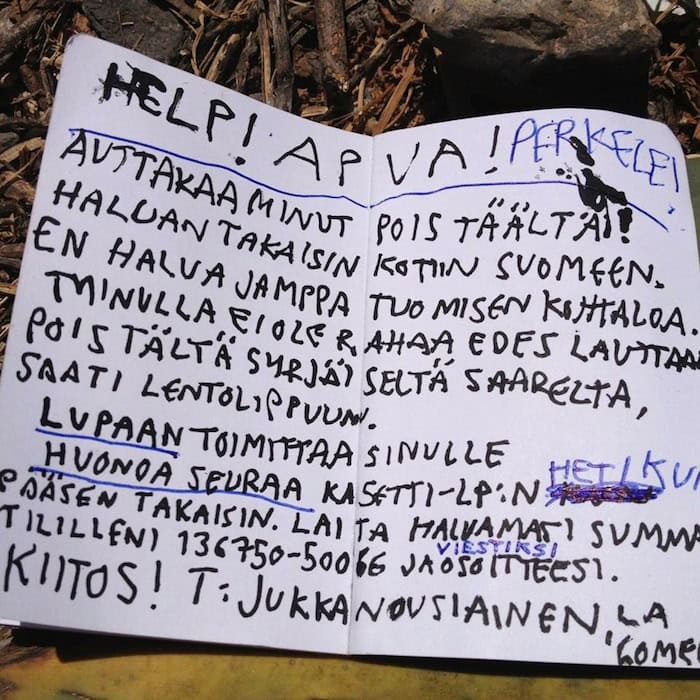 HELP! APUA! PERKELE!
AUTTAKAA MINUT POIS TÄÄLTÄ!
HALUAN TAKAISIN KOTIIN SUOMEEN.
EN HALUA JAMPPA TUOMISEN KOHTALOA.
MINULLA EI OLE RAHAA EDES LAUTTAAN
POIS TÄLTÄ SYRJÄISELTÄ SAARELTA,
SAATI LENTOLIPPUUN.
LUPAAN TOIMITTAA SINULLE
HUONOA SEURAA KASETTI-LP:N HETI KUN
PÄÄSEN TAKAISIN. LAITA HALUAMASI SUMMA
TILILLENI 136750-50066 JA OSOITTEESI. VIESTIKSI
KIITOS! T: JUKKA NOUSIAINEN, LA
GOME